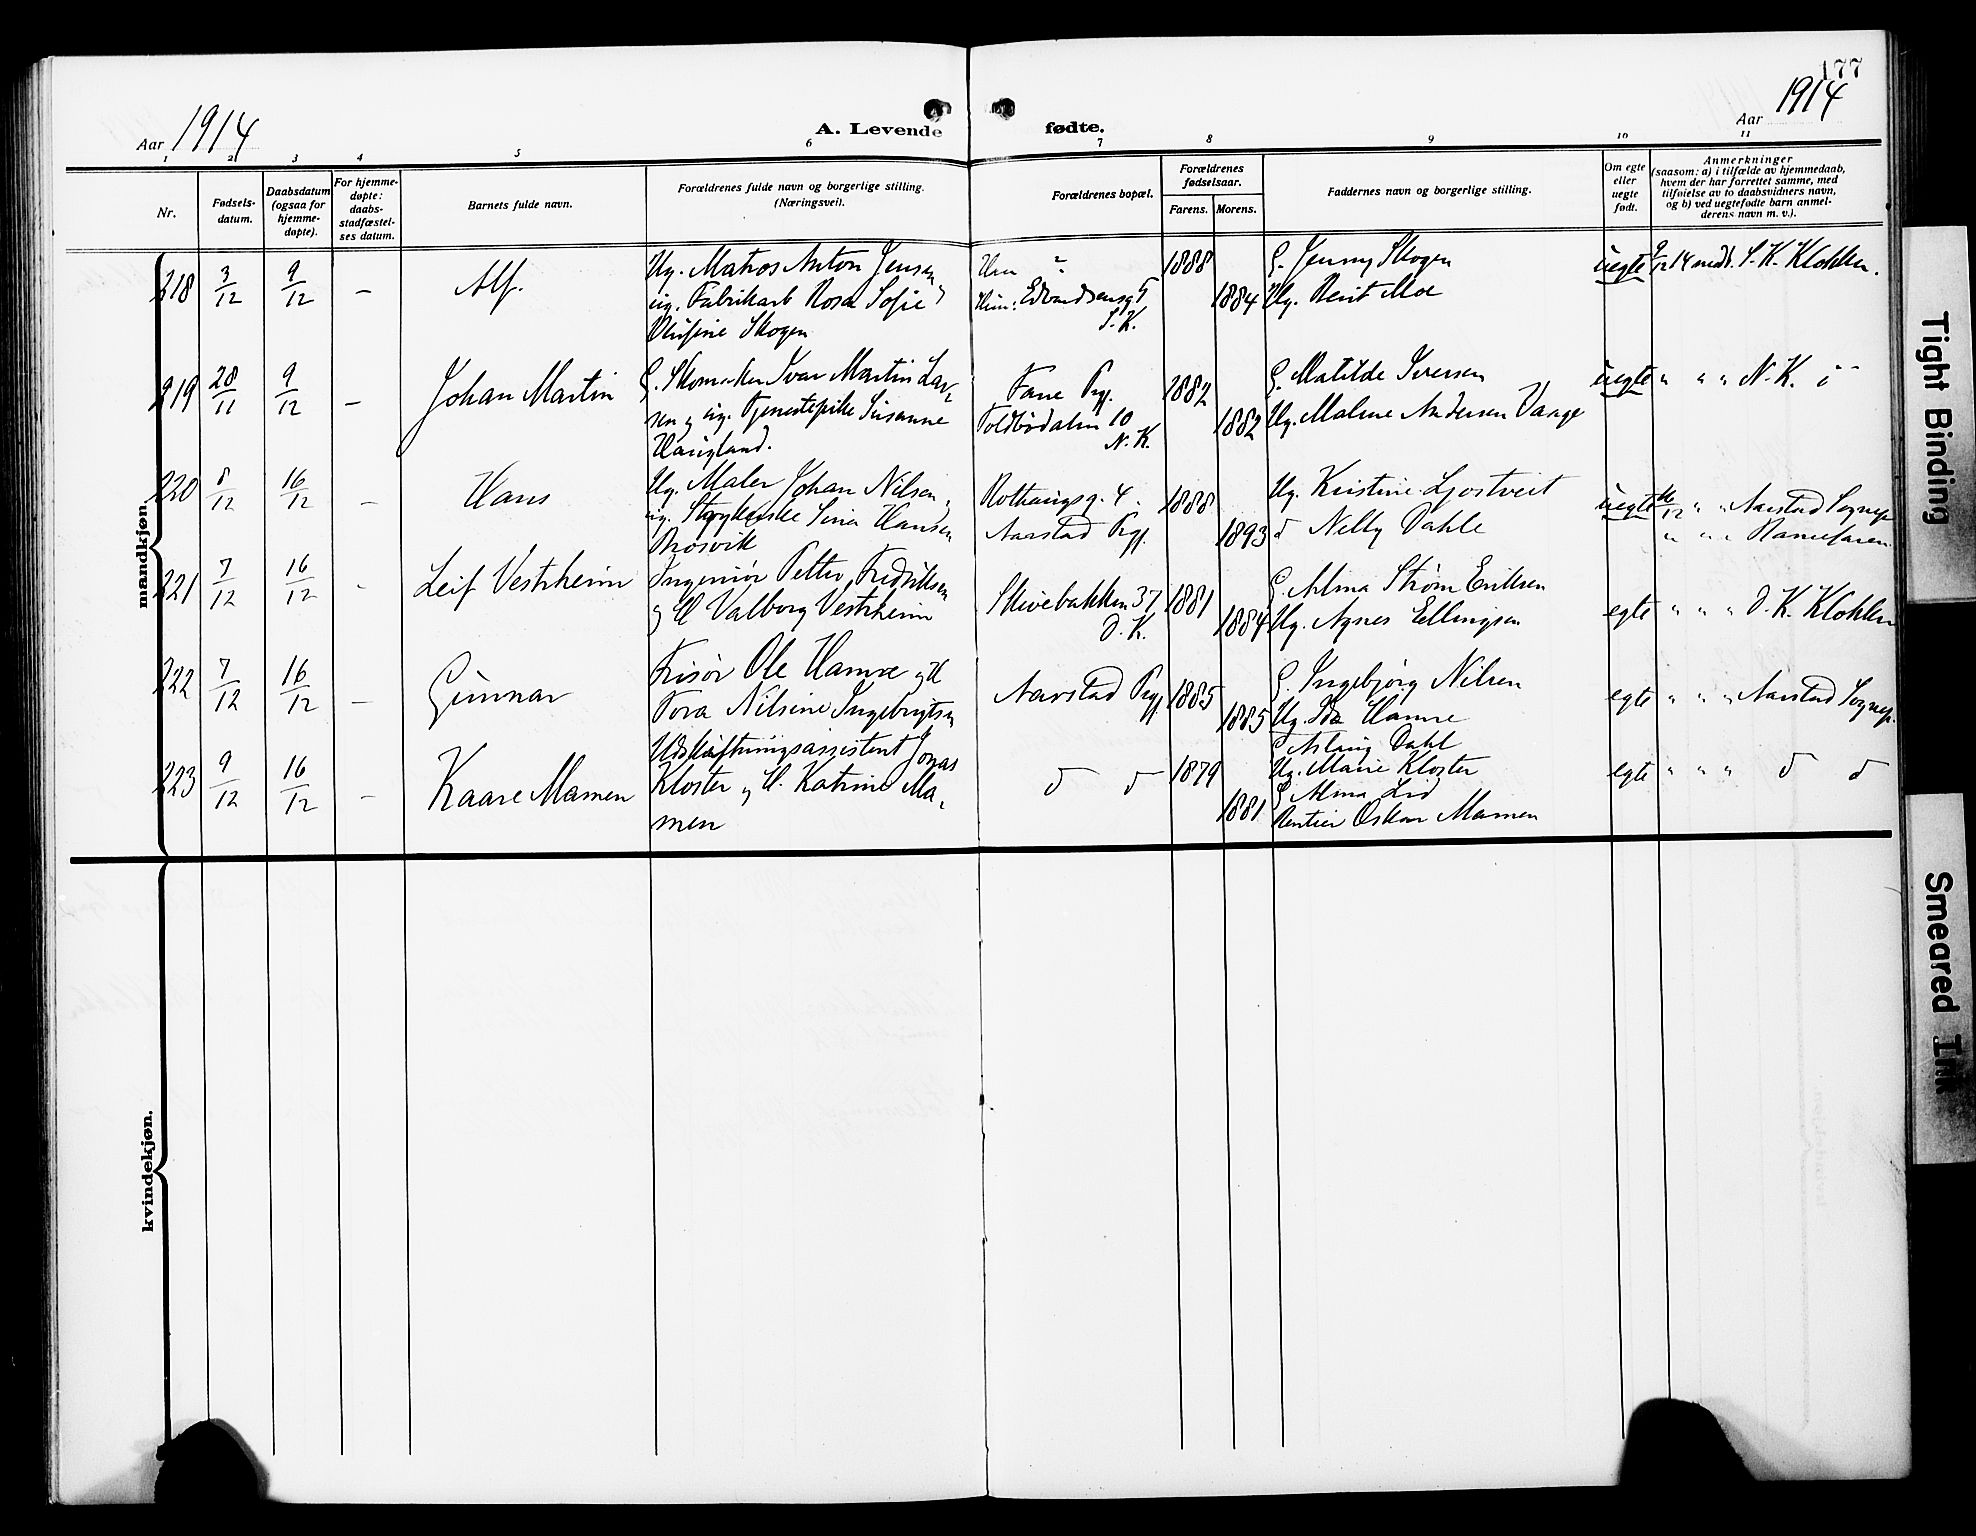 177
Aar 1914
A. Levende fødte.
Aar 1914
1 2 3 4 5 6 7 8 9 10 11
Nr.
Fødsels-
datum.
Daabsdatum
(ogsaa for
hjemme-
døpte).
For hjemme-
døpte:
daabs-
stadfæstel-
ses datum.
Barnets fulde navn.
Forældrenes fulde navn og borgerlige stilling.
(Næringsvei).
Forældrenes bopæl.
Forældrenes
fødselsaar.
Farens. Morens.
Faddernes navn og borgerlige stilling.
Om egte
eller
uegte
født.
Anmerkninger
(saasom: a) i tilfælde av hjemmedaab,
hvem der har forrettet samme, med
tilføielse av to daabsvidners navn,
og b) ved uegtefødte barn anmel-
derens navn m. v.).
mandkjøn.
218 3/12 9/12 — Alf.
Ug. Matros Anton Jensen
ug. Fabrikarb Rosa Sofie
Skogen
Edvardsensg 5
S. K.
1888
1884
G. Jenny Skogen
Ug. Berit Moe
uegte 9/12 14 medt. S. K. Klokken.
219 28/11 9/12 — Johan Martin
G. Skomaker Ivar Martin Lar-
sen og ug. Tjenestepike Susanne
Haugland.
Fane Pgj.
Toldbodalm 10
N. K.
1882
1882
G. Matilde Iversen
Ug. Malene Andersen Vaage
uegte " " " N. K.
220 8/12 16/12 — Hans
Ug. Maler Johan Nilsen
ug. Strykerske Hansen
Brosvik
4
Aarstad Pgj.
1888
1893
Ug. Kristine Ljostveit
d Nelly Dahle
uegte 16/12 " " Aarstad Sognep.
" " "
221 7/12 16/12 - Leif Vestrheim
Ingeniør Petter Fredriksen
og H Valborg Vestrheim
Skivebakken 37
D. K.
1881
1884
G. Alma Strøm Eriksen
Ug. Agnes Ellingsen
egte " " " D. K. Klokken
222 7/12 16/12 — Gunnar
Frisør Ole Hamre og H
Tora Nilsine Ingebrigtsen
Aarstad Pgj
1885
1885
G. Ingebjørg Nilsen
Ug. Ida Hamre
G Aslaug Dahl
egte " " " Aarstad Sognep.
223 9/12 16/12 — Kaare Mamen
Udskiftningsassistent Jonas
Kloster og H. Katrine Ma-
men
d d
1879
1881
Ug. Marie Kloster
G Alma Lid
Rentier Oskar Mamen
egte " " " d d
kvindekjøn.
Tight Binding
Smeared Ink